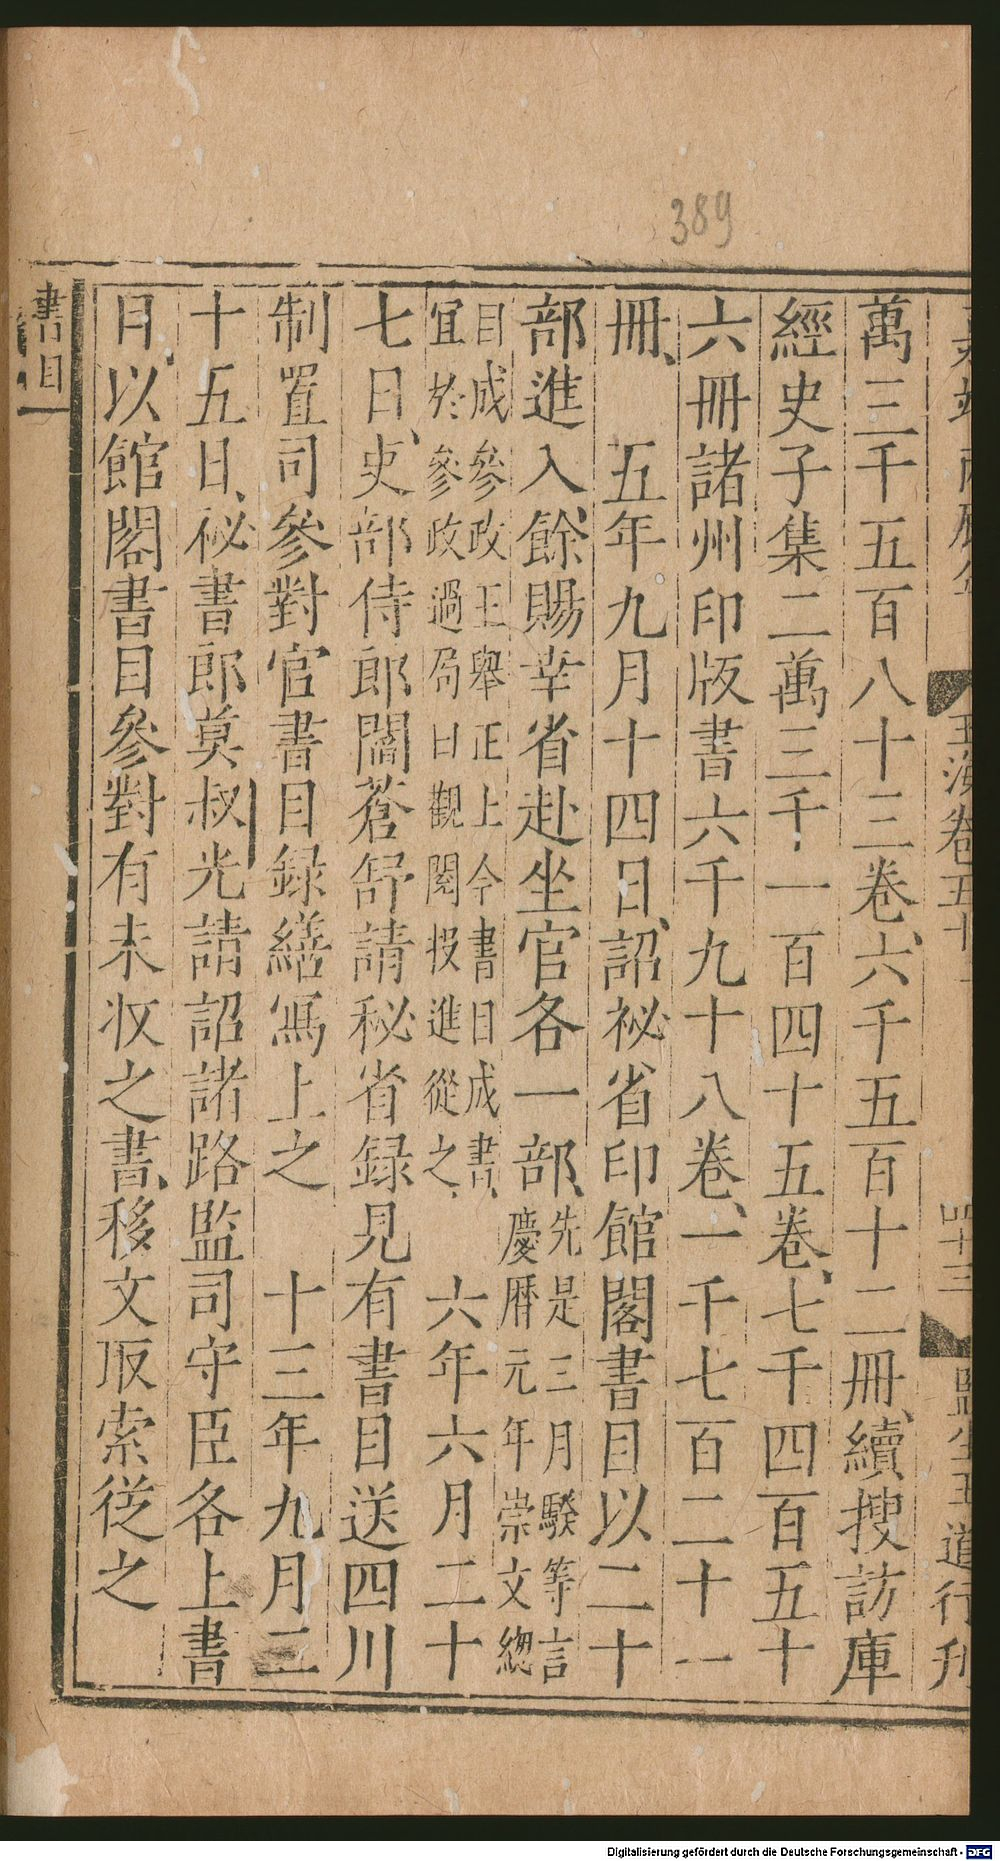 389
玉海卷五十
四十三
監生王道行刋
萬三千五百八十三卷六千五百十二冊續搜訪庫
經史子集二萬三千一百四十五卷七千四百五十
六冊諸州印版書六千九十八卷一千七百二十一
冊 五年九月十四日詔祕省印館閣書目以二十
部進入餘賜幸省赴坐官各一部先是三月騤等言
慶曆元年崇文總
目成參政王舉正上今書目成書
宜於參政過局日觀閱投進從之 六年六月二十
七日吏部侍郎閻蒼舒請秘省録見有書目送四川
制置司參對官書目録繕寫上之 十三年九月二
十五日祕書郎莫叔光請詔諸路監司守臣各上書
目以館閣書目參對有未收之書移文取索從之
書目
Digitalisierung gefördert durch die Deutsche Forschungsgemeinschaft - DFG